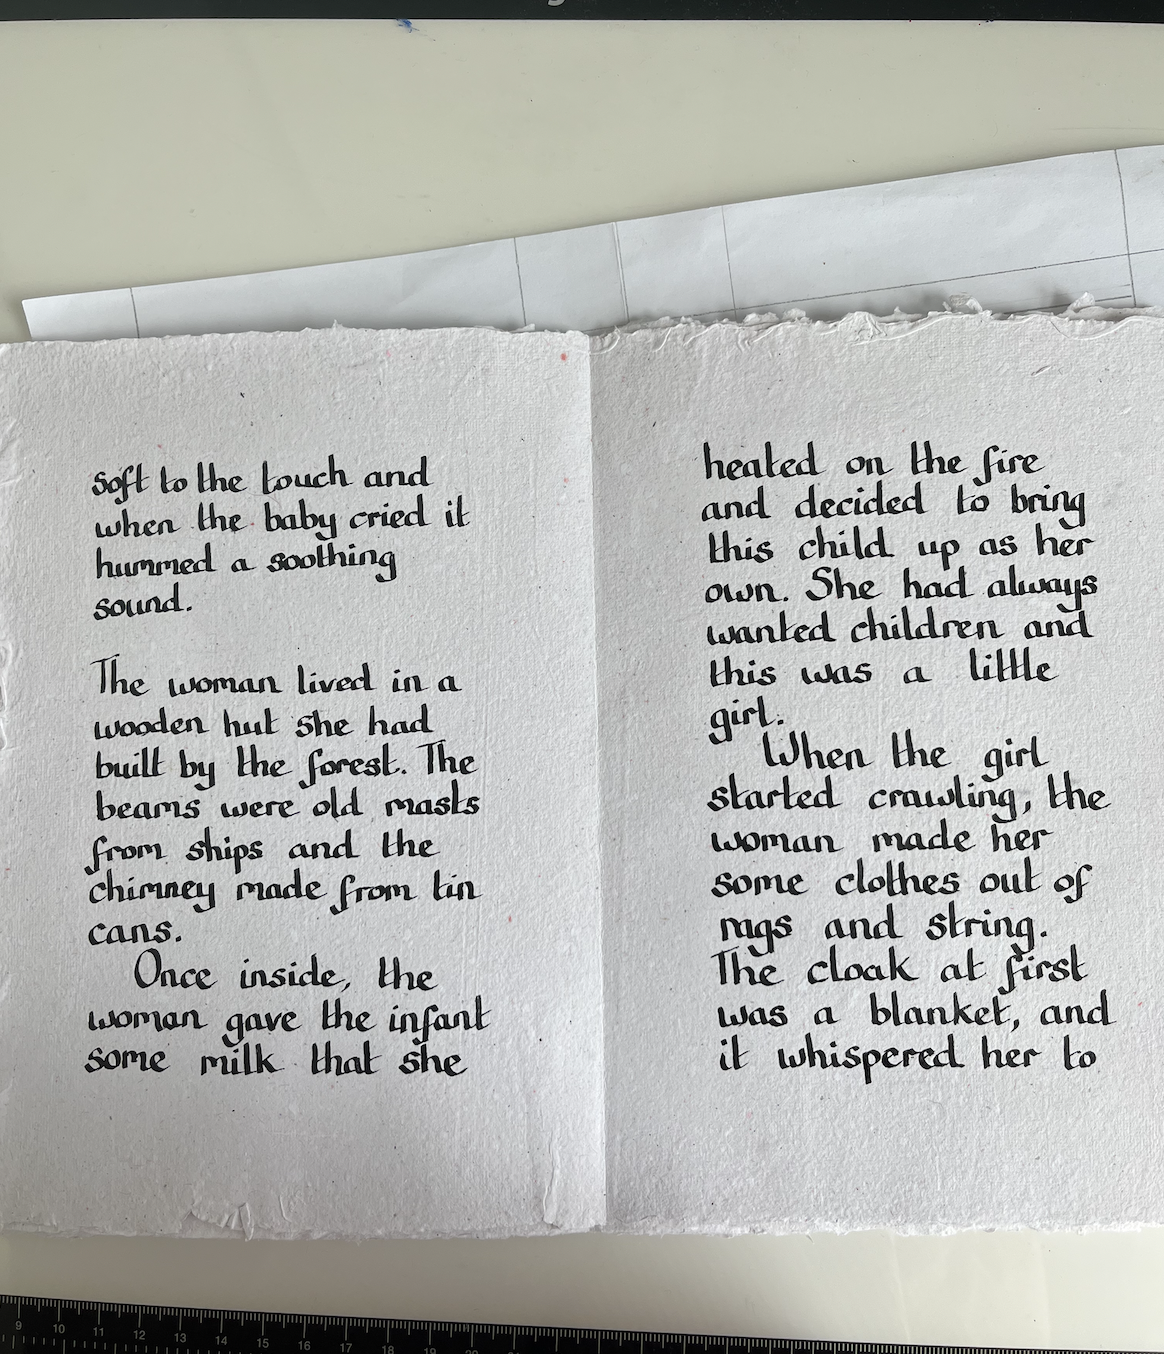 soft to the touch and
when the baby cried it
hummed a soothing
sound.
The woman lived in a
wooden hut she had
built by the forest. The
beams were old masts
from ships and the
chimney made from tin
cans.
Once inside, the
woman gave the infant
some milk that she
heated on the fire
and decided to bring
this child up as her
own. She had always
wanted children and
this was a little
girl.
When the girl
started crawling, the
woman made her
some clothes out of
rags and string.
The cloak at first
was a blanket, and
it whispered her to
9 10 11 12 13 14 15 16 17 18 19